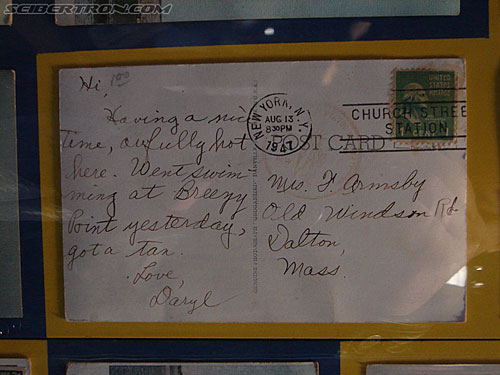 SEIBERTRON.COM
Hi,
Having a nice
time, awfully hot
here. Went swim-
ming at Breezy
Point yesterday,
got a tan.
Love,
Daryl
NEW YORK, N.Y.
AUG 13
8 30 PM
1947
CHURCH STREE
STATION
UNITED
STATES
POSTAGE
POST CARD
Mrs. F. Armsby
Old Windsor Rd.
Dalton,
Mass.